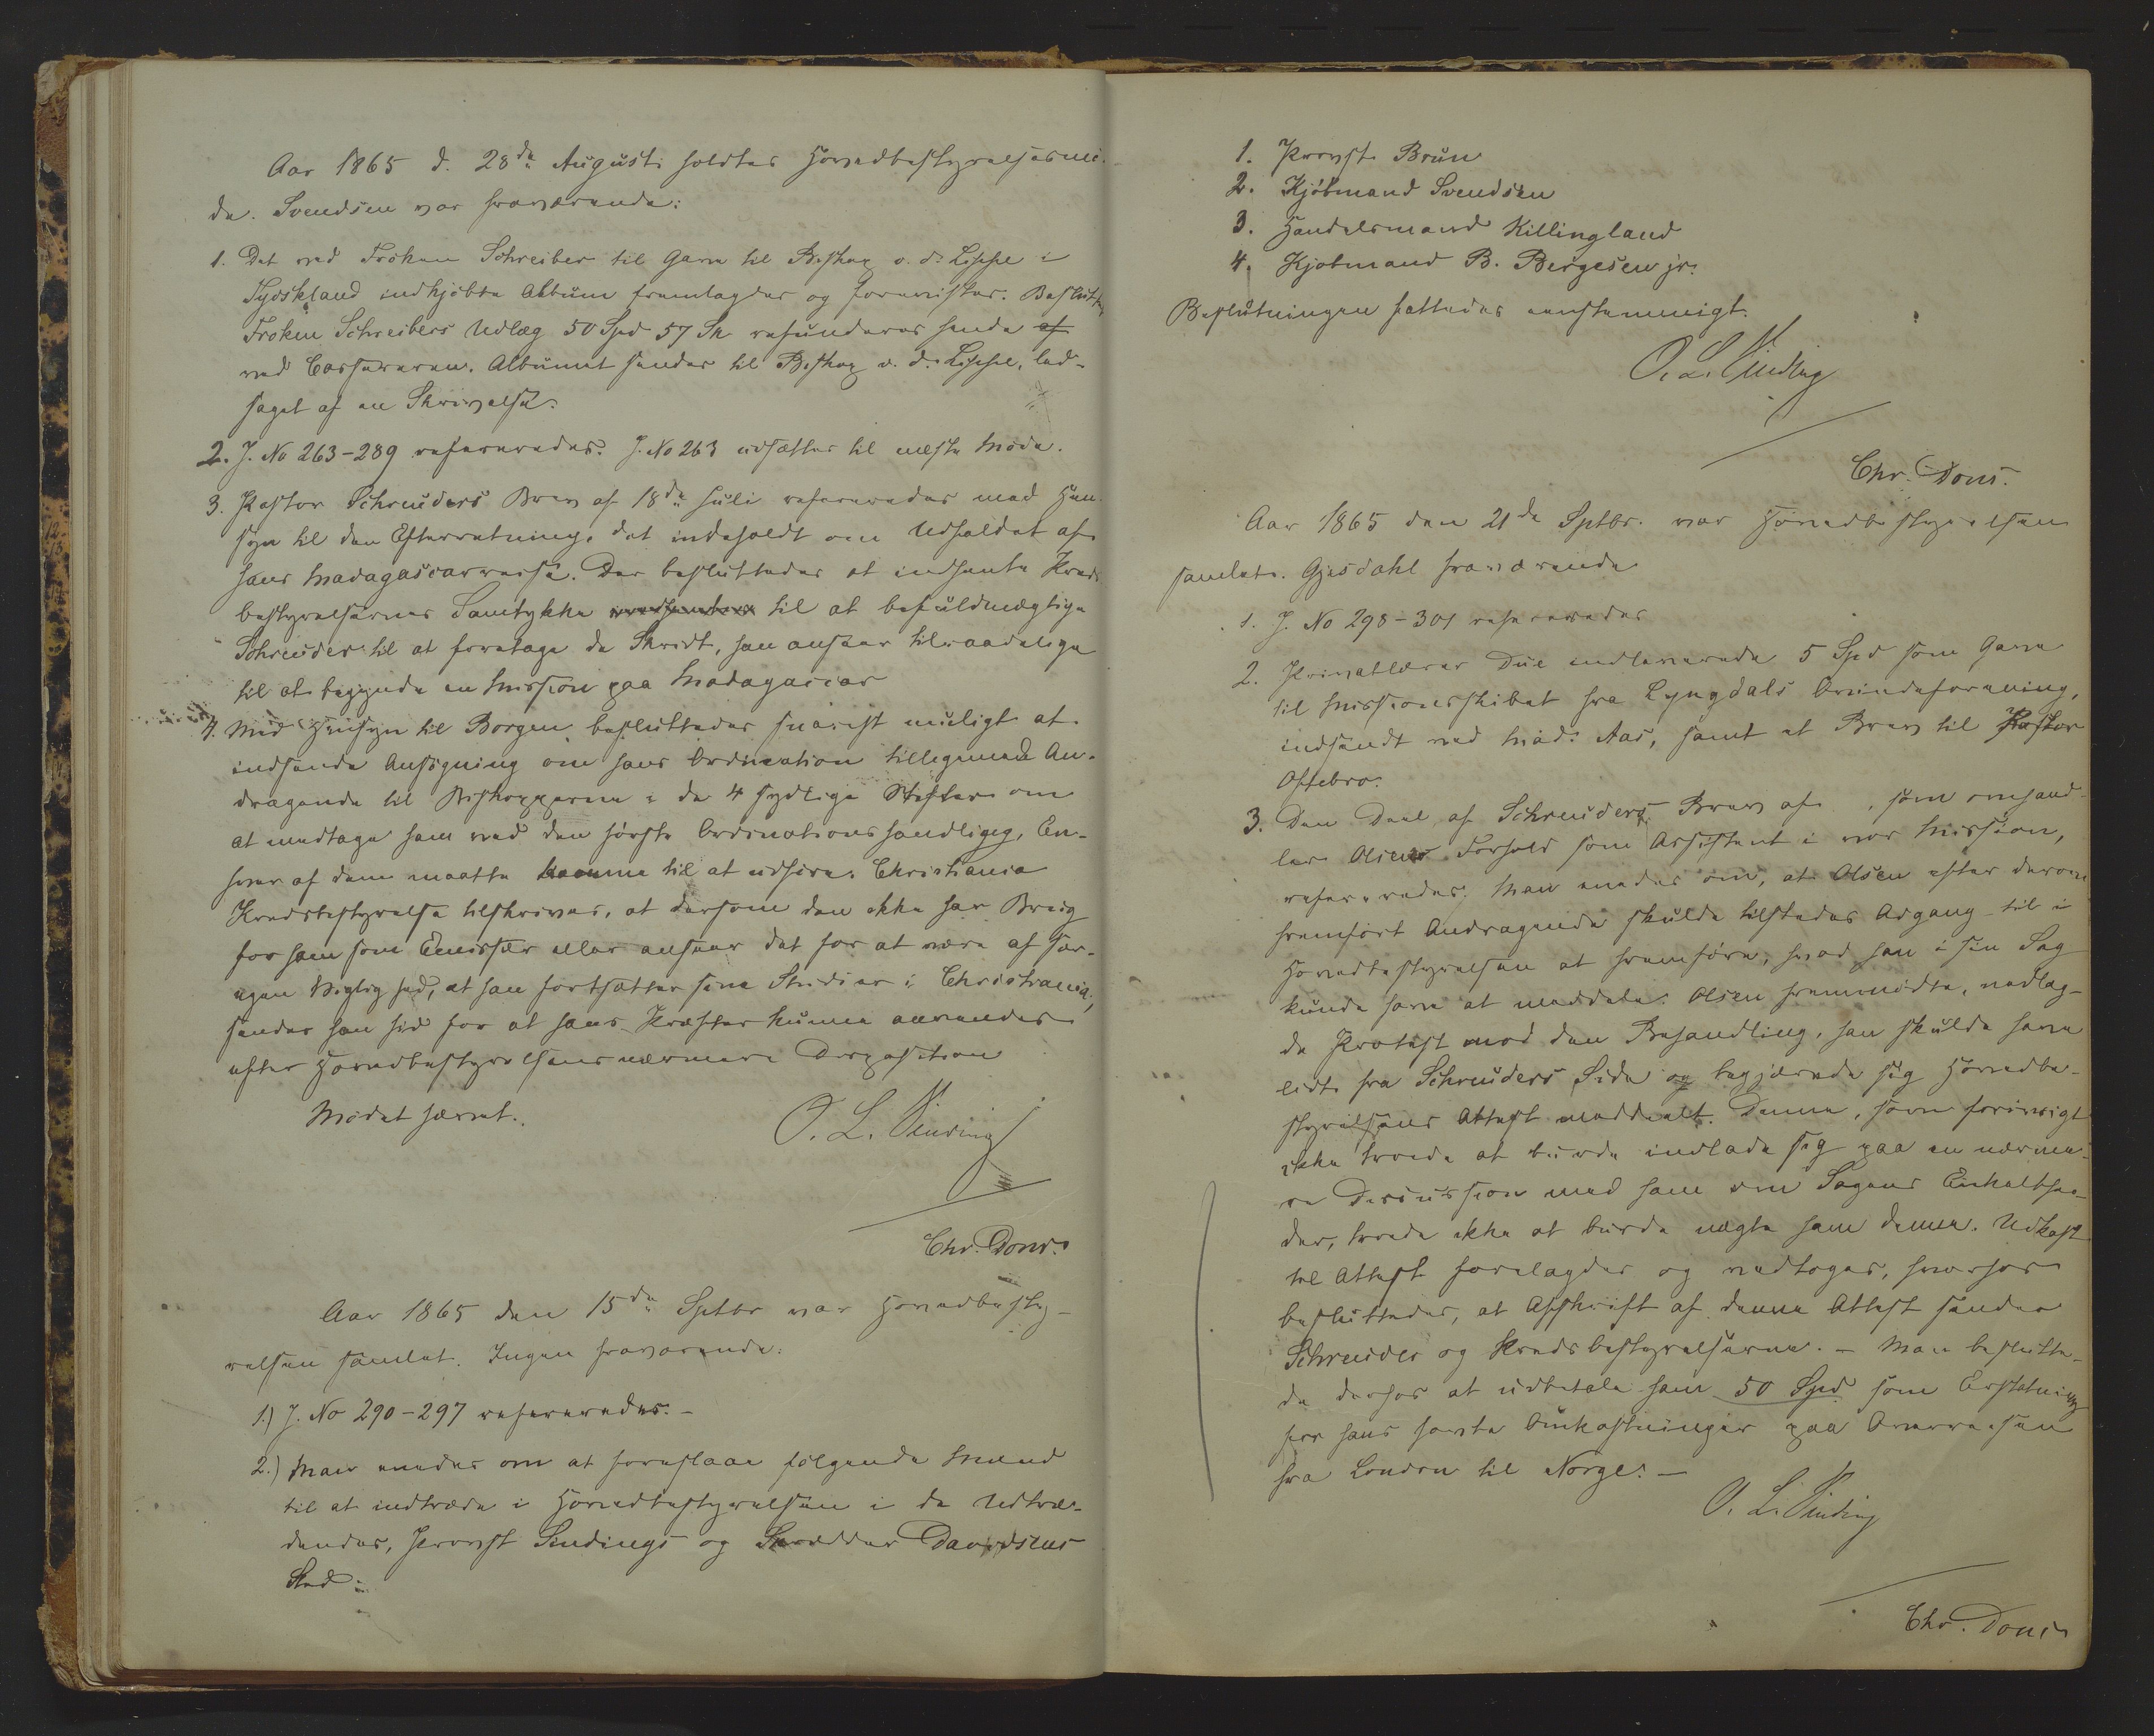 Aar 1865 d. 28de August holdtes Hovedbestyrelsesmö-
de. Svendsen var fraværende:
1. Det ved Fröken Schreiber til Gave til Biskop v. d. Lippe i
Tydskland indkjöbte Album fremlagdes og forevistes. Besluttet,
Fröken Schreibers Udlæg 50 Spd 57 Sk refunderes hende af
ved Cassereren. Albumet sendes til Biskop v. d. Lippe, led-
saget af en Skrivelse.
2. J. No 263-289 refereredes. J. No 263 udsættes til næste Möde.
3. Pastor Schreuders Brev af 18de Juli refereredes med Hen-
syn til den Efterretning, det indeholdt om Udfaldet af
hans Madagascarreise. Der besluttedes at indhente Kreds-
bestyrelsernes Samtykke til at befuldmægtige
Schreuder til at foretage de Skridt, han anseer tilraadelige
til at begynde en Mission paa Madagascar
4. Med Hensyn til Borgen besluttedes snarest muligt at
indsende Ansögning om hans Ordination tilligemed An-
dragende til Biskopperne i de 4 sydlige Stifter om
at medtage ham ved den förste Ordinationshandling, En-
hver af dem maatte komme til at udföre. Christiania
Kredsbestyrelse tilskrives, at dersom den ikke har Brug
for ham som Emissær eller anseer det for at være af sær-
egen Vigtighed, at han fortsætter sine Studier i Christiania,
sendes han hid for at hans Kræfter kunne anvendes
efter Hovedbestyrelsens nærmere Disposition
Mödet hævet.
O. L. Sinding
Chr. Dons.
Aar 1865 den 15de Septbr var Hovedbesty-
relsen samlet. Ingen fraværende.
1.) J. No 290-297 refereredes.-
2.) Man enedes om at foreslaae fölgende Mænd
til at indtræde i Hovedbestyrelsen i de Udtræ-
dendes, Provst Sindings og Skrædder Davidsens
Sted:
1. Provst Brun
2. Kjöbmand Svendsen
3. Handelsmand Killingland
4. Kjöbmand B. Bergesen jr.
Beslutningen fattedes eenstemmigt.
O. L. Sinding
Chr. Dons.
Aar 1865 den 21de Sptbr. var Hovedbestyrelsen
samlet. Gjesdahl fraværende
1. J. No 298-301 refereredes
2. Privatlærer Due indleverede 5 Spd som Gave
til Missionsskibet fra Lyngdals Qvindeforening,
indsendt ved Mad. Aas, samt et Brev til Pastor
Oftebro.
3. Den Deel af Schreuders Brev af , som omhand-
ler Olsens Forhold som Assistent i vor Mission,
refereredes. Man enedes om, at Olsen efter derom
fremfört Andragende skulde tilstedes Adgang til i
Hovedbestyrelsen at fremföre, hvad han i sin Sag
kunde have at meddele. Olsen fremmödte, nedlag-
de Protest mod den Behandling, han skulde have
lidt fra Schreuders Side og begjærede sig Hovedbe-
styrelsens Attest meddeelt. Denne, som forövrigt
ikke troede at burde indlade sig paa en nærme-
re Discussion med ham om Sagens Enkelthe-
der, troede ikke at burde nægte ham denne. Udkast
til Attest forelagdes og vedtoges, hvorhos
besluttedes, at Afskrift af denne Attest sendes
Schreuder og Kredsbestyrelserne. - Man beslutte-
de derhos at udbetale ham 50 Spd som Erstatning
for hans havte Omkostninger paa Overreisen
fra London til Norge. -
O. L. Sinding
Chr. Dons